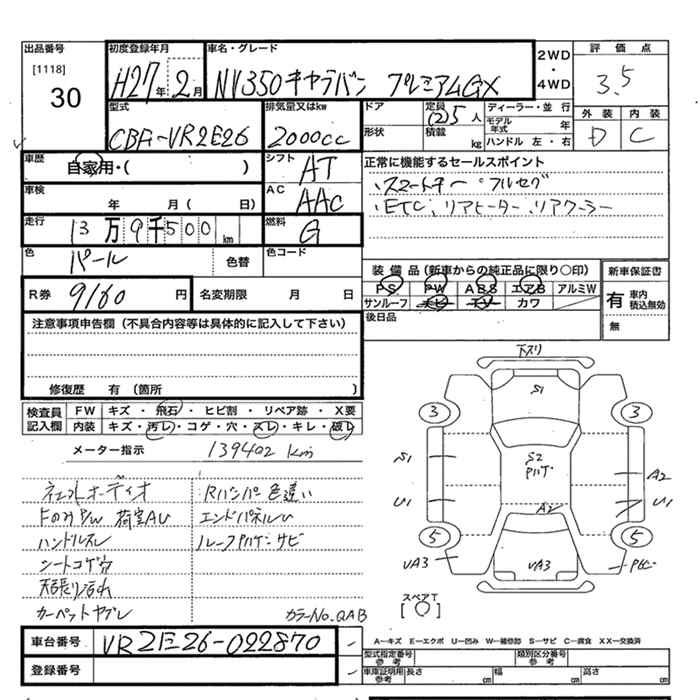 出品番号
[1118]
30
初度登録年月
H27年2月
車名・グレード
NV350キャラバン プレミアムGX
2WD
・
4WD
評価点
3.5
型式
CBF-VR2E26
排気量又はkw
2000cc
ドア
形状
定員 (2)5人
積載 kg
ディーラー・並 行
モデル年式 年
ハンドル 左・右
外装 内装
D C
車歴
自家用・( )
シフト
AT
正常に機能するセールスポイント
・スマートキー・フルセグ
・ETC、リアヒーター、リアクーラー
車検
年 月( 日)
AC
AAC
走行
13万9千500km
燃料
G
色
パール
色替
色コード
装備品(新車からの純正品に限り○印)
PS PW ABS エアB アルミW
サンルーフ ナビ TV カワ
新車保証書
有 車内積込無効
無
R券 9160円
名変期限 月 日
後日品
注意事項申告欄(不具合内容等は具体的に記入して下さい)
修復歴 有(箇所 )
検査員記入欄
FW キズ・飛石・ヒビ割・リペア跡・X要
内装 キズ・汚レ・コゲ・穴・スレ・キレ・破レ
メーター指示 139402 km
オーディオ
Rバンパー色違い
FのみP/W 荷室AU
エンドパネルU
ハンドルスレ
シートコゲ穴
天張り汚れ
カーペットヤブレ
カラーNo.QAB
下スリ
S1
3 3
S1
S2
A2
U1
A2
U1
5 5
UA3
UA3
スペアT
[○]
車台番号 VR2E26-022870
登録番号
A−キズ E−エクボ U−凹み W−補修跡 S−サビ C−腐食 XX−交換済
型式指定番号 参考
類別区分番号 参考
車庫証明用 参考 長さ cm 幅 cm 高さ cm